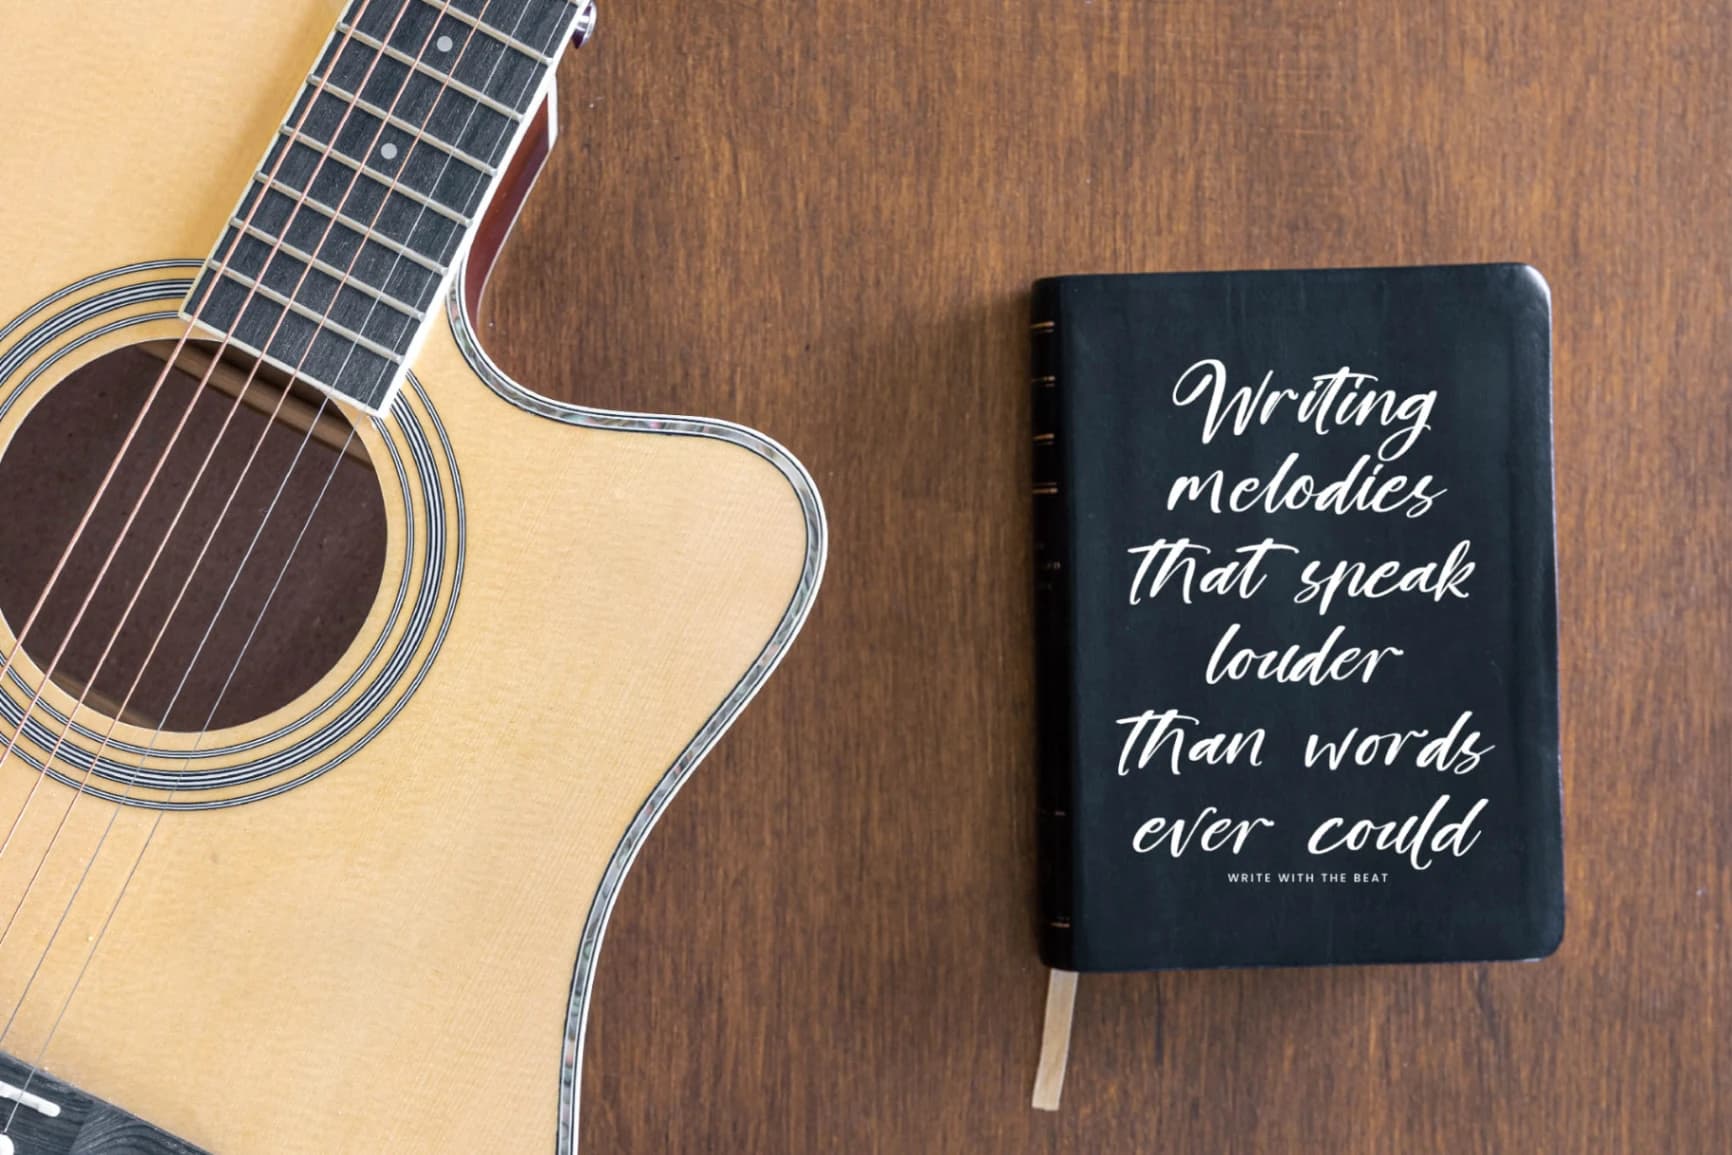 Writing
melodies
that speak
louder
than words
ever could
WRITE WITH THE BEAT